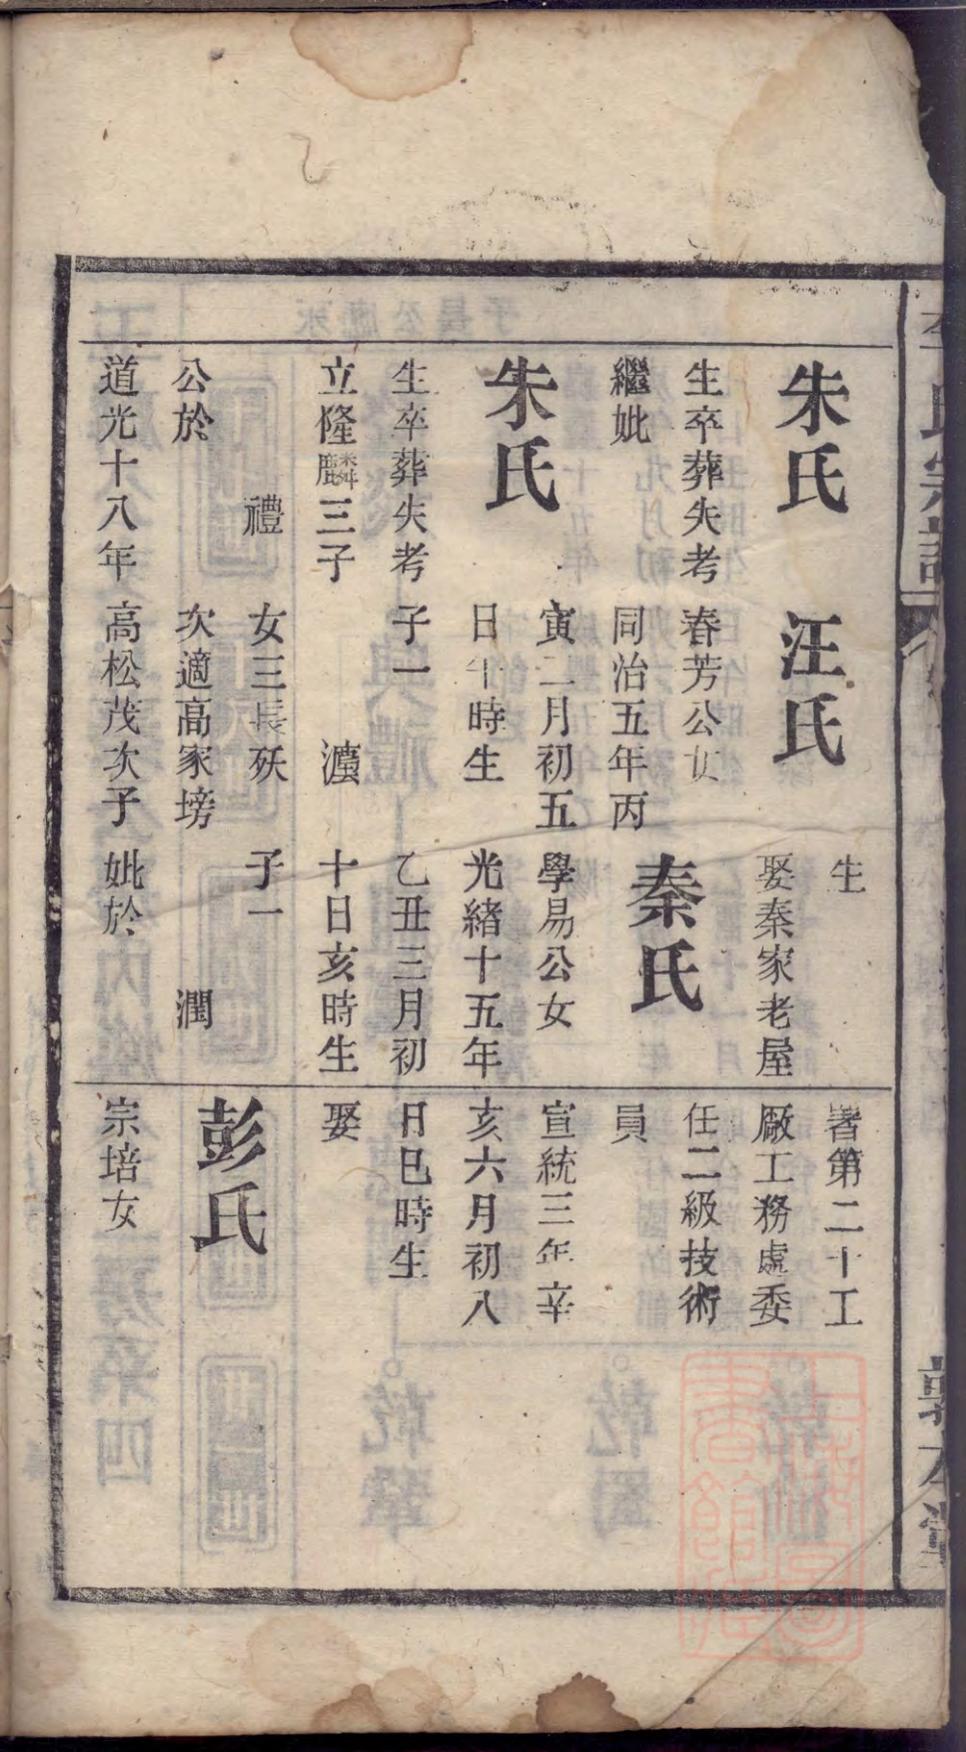 氏宗譜
朱氏
生卒葬失考
繼妣
朱氏
生卒葬失考
立隆麟三子
禮
公於
道光十八年
汪氏
春芳公女
同治五年丙
寅二月初五
日午時生
子一
女三長殀
次適高家塝
高松茂次子
生
娶秦家老屋
秦氏
學易公女
光緒十五年
乙丑三月初
十日亥時生
子一
潤
妣於
署第二十工
廠工務處委
任二級技術
員
宣統三年辛
亥六月初八
日巳時生
娶
彭氏
宗培女